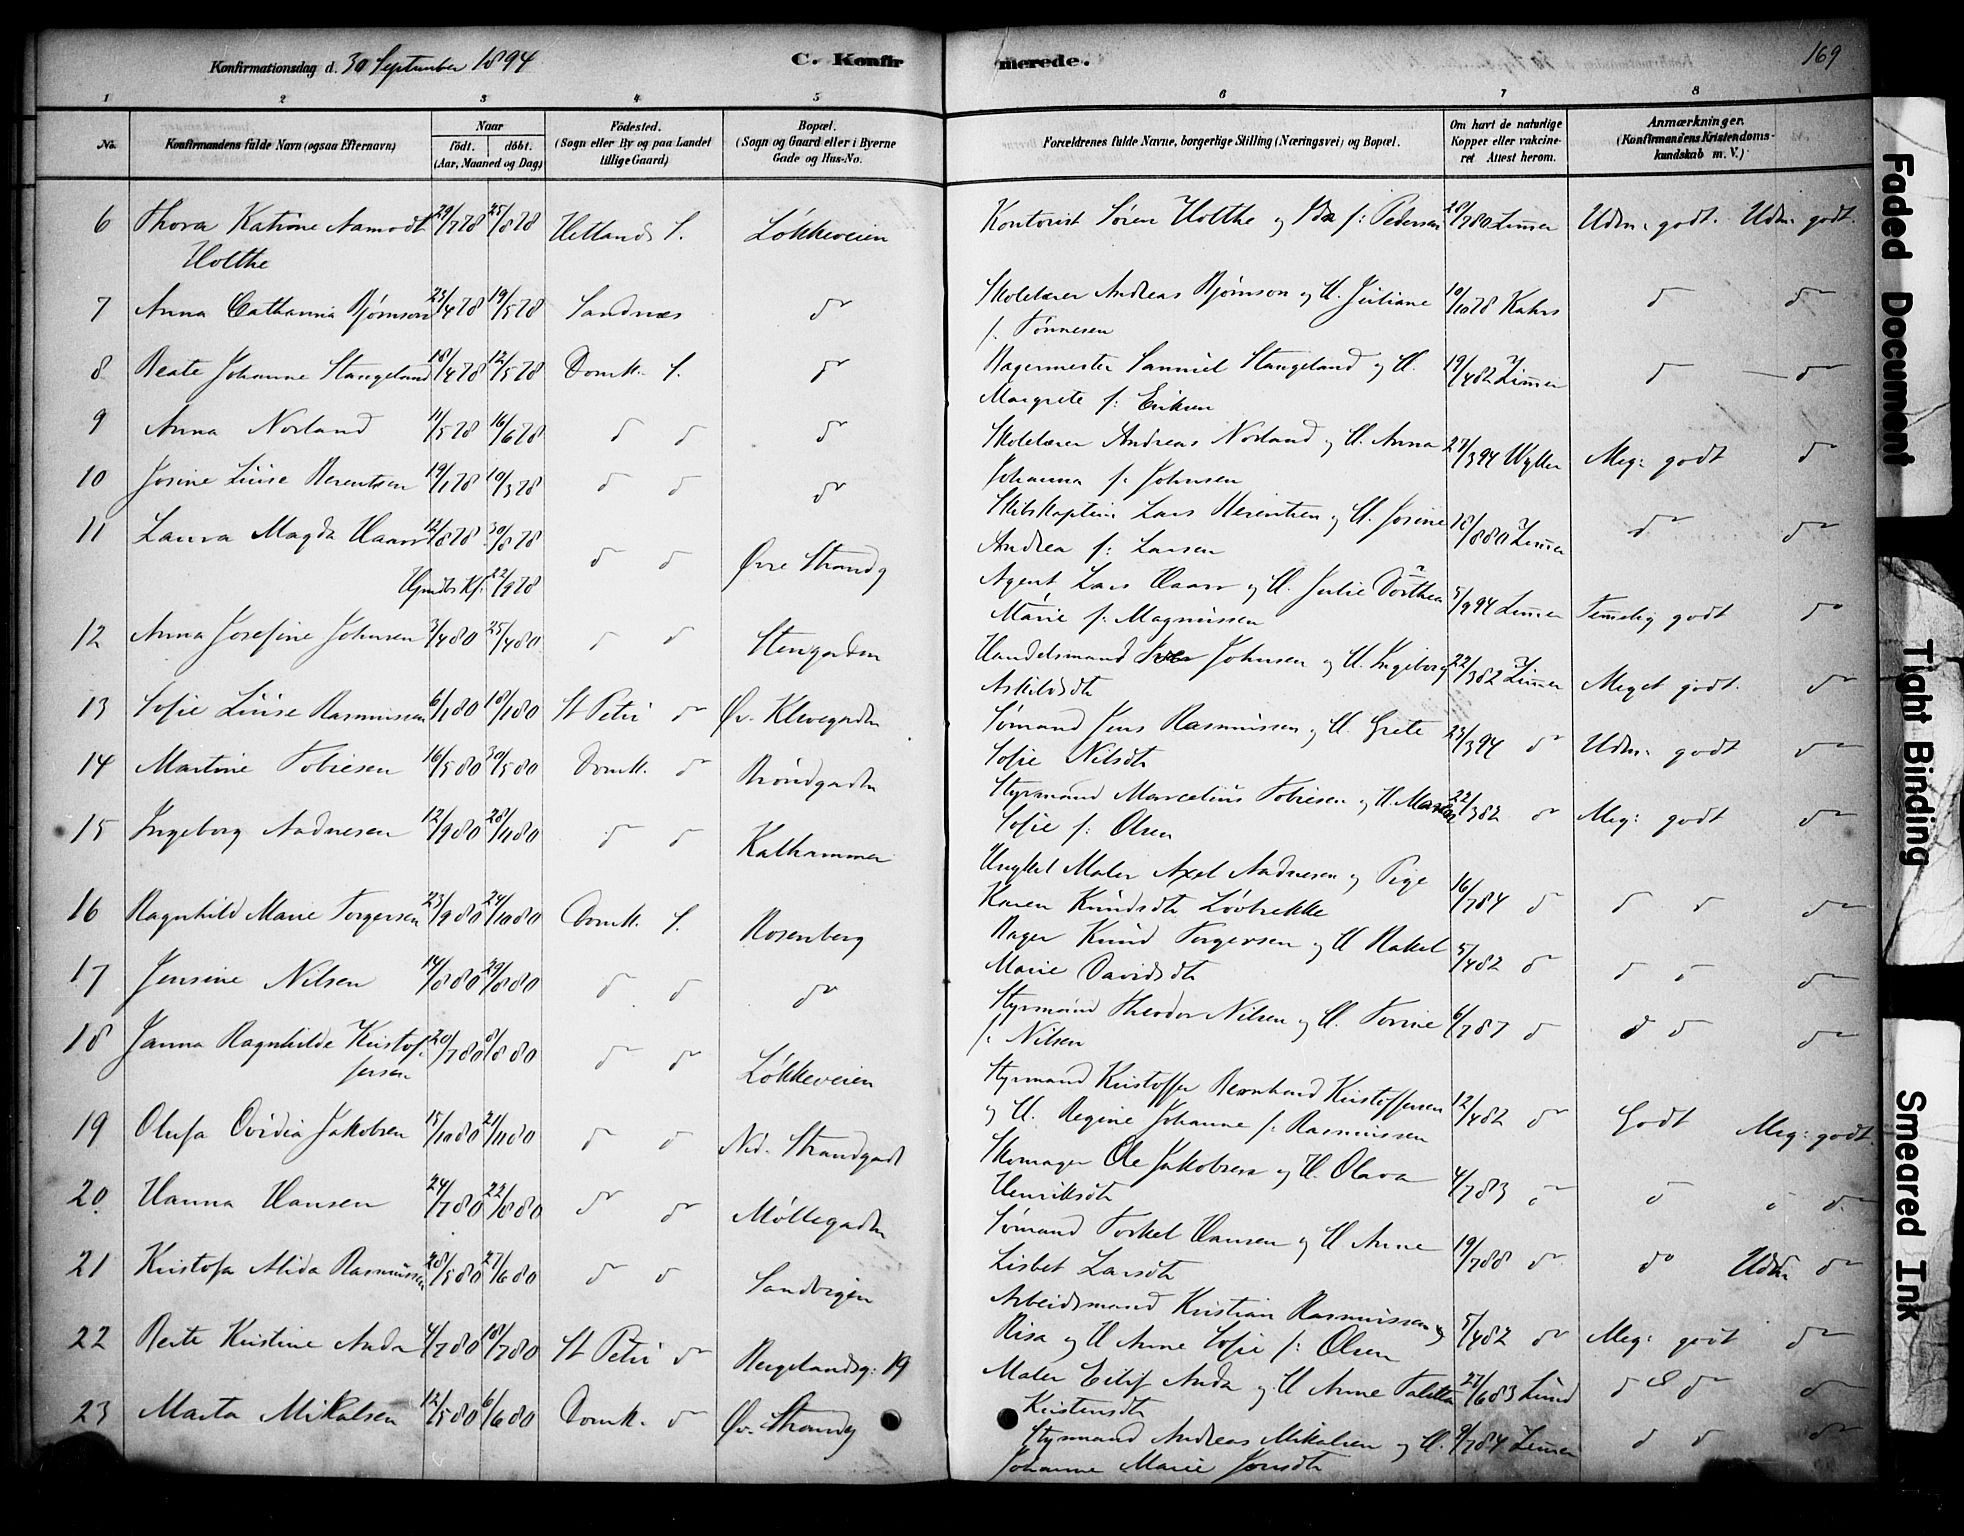 Konfirmationsdag d. 30 September 1894
C. Konfirmerede.
169
1 2 3 4 5 6 7 8
No.
Konfirmandens fulde Navn (ogsaa Efternavn)
Naar
födt. döbt.
(Aar, Maaned og Dag)
Födested.
(Sogn eller By og paa Landet
tillige Gaard)
Bopæl.
(Sogn og Gaard eller i Byerne
Gade og Hus-No.
Forældrenes fulde Navne, borgerlige Stilling (Næringsvei) og Bopæl.
Om havt de naturlige
Kopper eller vakcine-
ret Attest herom.
Anmærkninger.
(Konfirmandens Kristendoms-
kundskab m. V.)
6 Thora Katrine Aamodt 29/7 78 25/8 78 Hetlands S. Løkkeveien Kontorist Sören Holthe og Ida f: Pedersen 28/7 80 Zimmer Udm. godt. Udm. godt.
Holthe
7 Anna Cathanna Bjørnson 23/4 78 19/5 78 Sandnes do Skolelærer Andreas Bjørnson og H. Juliane 10/10 78 Kahrs do do
f. Tønnesen
8 Beate Johanne Stangeland 18/4 78 12/5 78 Domk. S. do Bagermester Samuel Stangeland og H. 19/4 82 Zimmer do do
Margrete f: Eriksen
9 Anna Norland 11/5 78 16/6 78 do do do Skolelærer Andreas Norland og H. Anna 27/3 94 Wyller Meg: godt do
Johanna f. Johnsen
10 Josine Luise Berentsen 19/1 78 10/3 78 do do do Skibskaptein Lars Berentsen og H. Josine 18/8 80 Zimmer do do
Andrea f: Larsen
11 Laura Magda Haarr 12/8 78 30/8 78 do do Øvre Strandg Agent Lars Haarr og H. Julie Dorthea 5/9 94 Zimmer Temmelig godt do
Hjmdb. Kf. 22/9 78
Marie f. Magnussen
12 Anna Josefine Johnsen 3/4 80 25/4 80 do do Stengaden Handelsmand Johnsen og H. Ingeborg 22/3 82 Zimmer Meget godt. do
Askildsdt
13 Sofie Luise Rasmussen 6/1 80 18/1 80 St Petri do Øv. Klevegaden Sømand Jens Rasmussen og H. Grete 23/3 94 do Udm. godt do
Sofie Nilsdt
14 Martine Tobiesen 16/5 80 30/5 80 Domk. do Brøndgaden Styrmand Marcelius Tobiesen og H. 22/3 82 do Meg: godt do
Sofie f: Olsen
15 Ingeborg Andresen 12/9 80 28/11 80 do do Kalhammer Ungkel Maler Axel Andresen og Pige 16/7 84 do do do do
Karen Knudsdt Løvbrekke
16 Ragnhild Marie Torgersen 23/9 80 24/10 80 Domk. S. Rosenberg Bager Knud Torgersen og H Rakel 5/4 82 do do do do
Marie Davidsdt
17 Jensine Nilsen 14/8 80 29/8 80 do do do Styrmand Theodor Nilsen og H. Torine 6/7 87 do do do do
f. Nilsen
18 Janna Ragnhilde Kristof- 20/7 80 8/8 80 do do Løkkeveien Styrmand Kristoffer Bernhard Kristoffersen 12/4 82 do Godt Meg: godt.
fersen
og H. Regine Johanne f: Rasmussen
19 Olufa Ovidia Jakobsen 15/10 80 21/11 80 do do Ned. Strandgadt Skomager Ole Jakobsen og H. Olava 4/7 83 do do do do
Henriksdt
20. Hanna Hansen 24/7 80 22/8 80 do do Møllegaden Sømand Torkel Hansen og H Anne 19/7 88 do do Udm do
Lisbet Larsdt
21 Kristofa Alida Rasmussen 28/5 80 27/6 80 do do Sandvigen Arbeidsmand Kristian Rasmussen 5/4 82 do Meg: godt do
Risa og H Anne Sofie f: Olsen
22 Berte Kristine Anda 4/7 80 18/7 80 St Petri do Bergelandsg: 19 Maler Eilif Anda og H Anne Talette 27/6 83 Lund do do do
Kristensdt
23 Marta Mikalsen 12/5 80 6/6 80 Domk. do Øv. Strandg Styrmand Andreas Mikalsen og H. 9/7 84 Zimmer do do do
Johanne Marie Jonsdt
Faded Document
Tight Binding
Smeared Ink